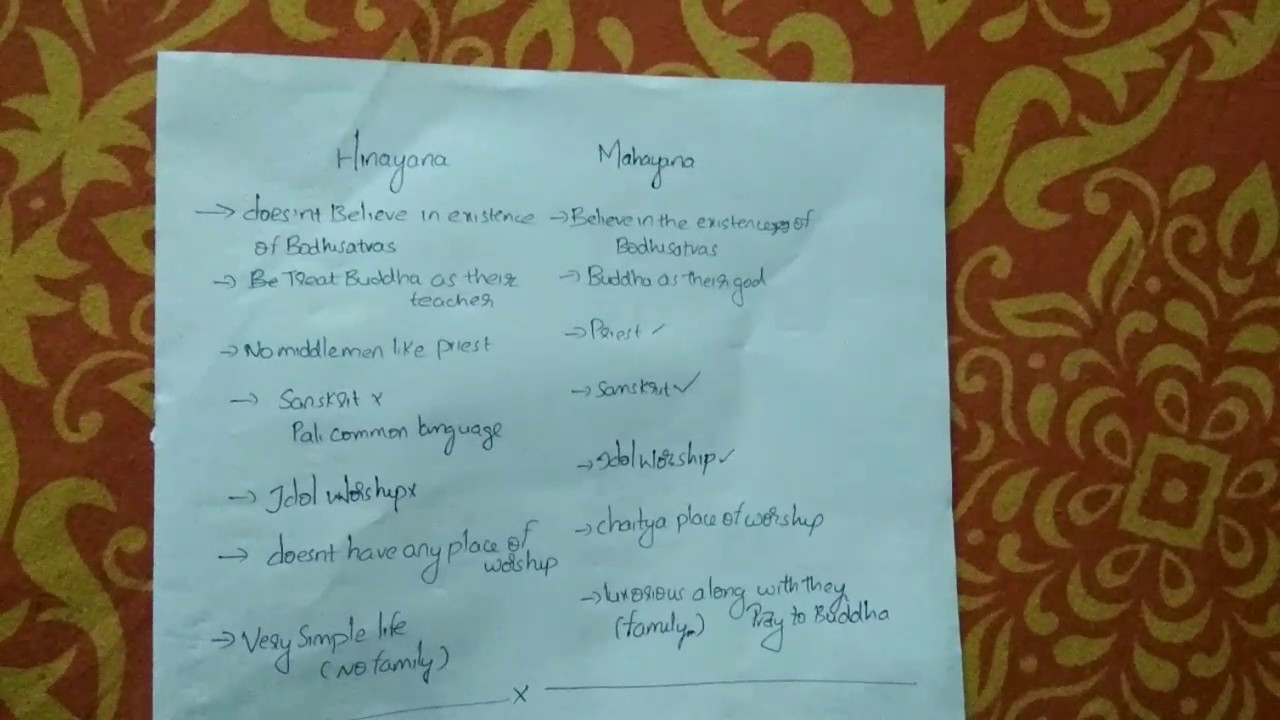 Hinayana
→ does'nt Believe in existence
of Bodhisatvas
→ Be Treat Buddha as their
teacher
→ No middlemen like priest
→ Sanskrit x
Pali common language
→ Idol worship x
→ doesnt have any place of
worship
→ Very Simple life
(No family)
Mahayana
→ Believe in the existence of
Bodhisatvas
→ Buddha as their god
→ Priest ✓
→ Sanskrit ✓
→ Idol worship ✓
→ chaitya place of worship
→ luxorious along with they
(family) Pray to Buddha
x